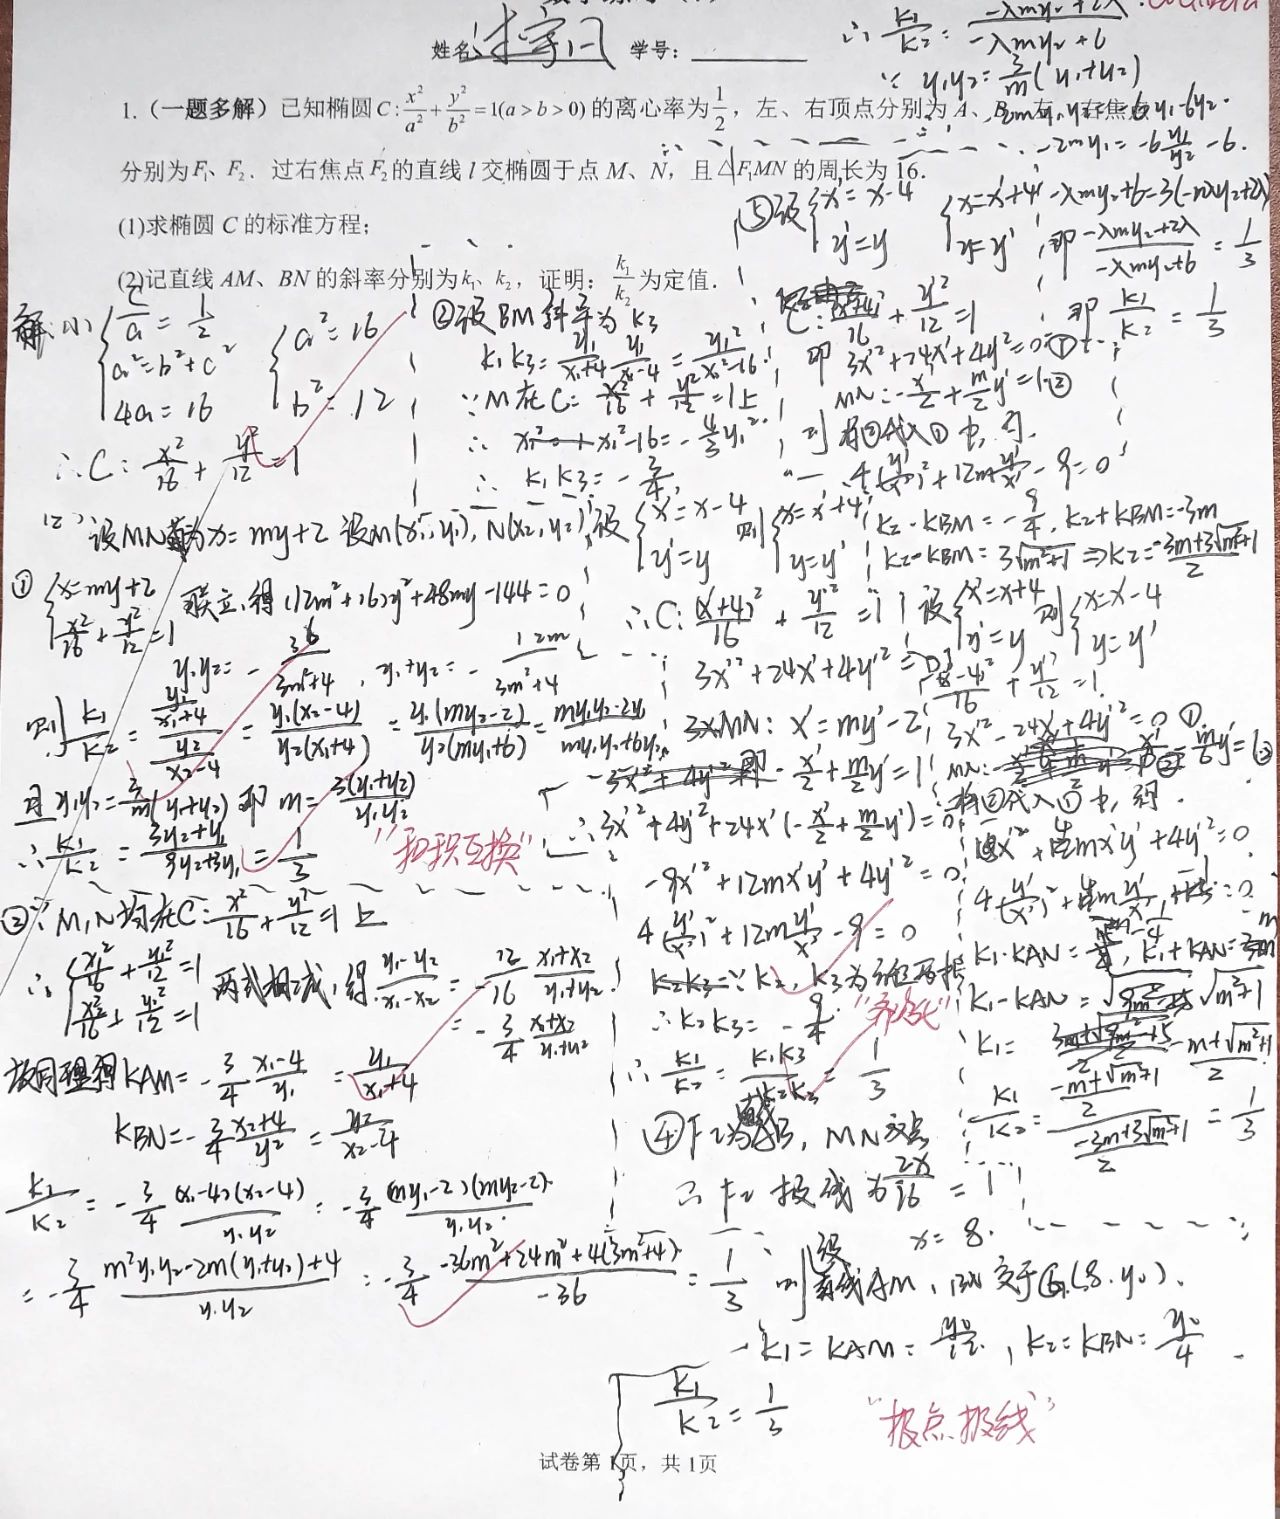 姓名: 学号:
1.（一题多解）已知椭圆C:x²/a²+y²/b²=1(a>b>0)的离心率为1/2，左、右顶点分别为A、B，左、右焦点
分别为F₁、F₂．过右焦点F₂的直线l交椭圆于点M、N，且△F₁MN的周长为16．
(1)求椭圆C的标准方程；
(2)记直线AM、BN的斜率分别为k₁、k₂，证明：k₁/k₂为定值．
解:(1) {c/a=1/2
a²=b²+c²
4a=16
{a²=16
b²=12
∴C: x²/16+y²/12=1
(2) 设MN为x=my+2 设M(x₁,y₁), N(x₂,y₂)
① {x=my+2
x²/16+y²/12=1 联立,得(12m²+16)y²+48my-144=0
y₁y₂=-36/(3m²+4), y₁+y₂=-12m/(3m²+4)
则k₁/k₂=(y₁/(x₁+4))/(y₂/(x₂-4))=y₁(x₂-4)/(y₂(x₁+4))=y₁(my₂-2)/(y₂(my₁+6))=(my₁y₂-2y₁)/(my₁y₂+6y₂)
且y₁y₂=3/m(y₁+y₂) 即m=3(y₁+y₂)/(y₁y₂)
∴k₁/k₂=(3y₂+y₁)/(9y₂+3y₁)=1/3
"和积互换"
②∵M,N均在C: x²/16+y²/12=1上
∴{x₁²/16+y₁²/12=1
x₂²/16+y₂²/12=1 两式相减,得(y₁-y₂)/(x₁-x₂)=-12/16 (x₁+x₂)/(y₁+y₂)
=-3/4 (x₁+x₂)/(y₁+y₂)
故同理得kAM=-3/4 (x₁-4)/y₁=y₁/(x₁+4)
kBN=-3/4 (x₂+4)/y₂=y₂/(x₂-4)
k₁/k₂=-3/4 (x₁-4)(x₂-4)/(y₁y₂)=-3/4 (my₁-2)(my₂-2)/(y₁y₂)
=-3/4 (m²y₁y₂-2m(y₁+y₂)+4)/(y₁y₂)=-3/4 (-36m²+24m²+4(3m²+4))/(-36)=1/3
②设BM斜率为k₃
k₁k₃=y₁/(x₁+4) y₁/(x₁-4)=y₁²/(x₁²-16)
∵M在C: x²/16+y²/12=1上
∴x₁²-16=-4/3y₁²
∴k₁k₃=-3/4
设{x'=x-4
y'=y 则{x=x'+4
y=y'
∴C: (x'+4)²/16+y'²/12=1
3x'²+24x'+4y'²=0
MN: x'=my'-2
即-x'/2+m/2y'=1
∴3x'²+4y'²+24x'(-x'/2+m/2y')=0
-9x'²+12mx'y'+4y'²=0
4(y'/x')²+12m y'/x'-9=0
∵k₂,k₃为方程两根
∴k₂k₃=-9/4
"齐次化"
∴k₁/k₂=k₁k₃/k₂k₃=1/3
④F₂为, MN交点
∴F₂极线为2x/16=1
x=8.
则设直线AM,BN交于G(8,y₀).
k₁=kAM=y₀/12, k₂=kBN=y₀/4
k₁/k₂=1/3
"极点极线"
⑤设{x'=x-4
y'=y {x=x'+4
y=y'
C: (x'+4)²/16+y'²/12=1
即3x'²+24x'+4y'²=0①
MN:-x'/2+m/2y'=1②
则将②代入①中,得
4(y'/x')²+12m y'/x'-9=0
k₂·kBM=-9/4, k₂+kBM=-3m
k₂-kBM=3√(m²+1)⇒k₂=(-3m+3√(m²+1))/2
设{x'=x+4
y'=y 则{x=x'-4
y=y'
(x'-4)²/16+y'²/12=1
3x'²-24x'+4y'²=0①
MN: x'/6-m/6y'=1②
将②代入①中,得
k₁·kAN=-1/4, k₁+kAN=-m
k₁-kAN=√(m²+1)
k₁=(-m+√(m²+1))/2
k₁/k₂=((-m+√(m²+1))/2)/((-3m+3√(m²+1))/2)=1/3
∴k₁/k₂=(-λmy₂+2λ)/(-λmy₂+6)
∵y₁y₂=3/m(y₁+y₂)
-2my₁=-6y₁/y₂-6.
-λmy₂+6=3(-λmy₂+2λ)
即(-λmy₂+2λ)/(-λmy₂+6)=1/3
即k₁/k₂=1/3
试卷第1页，共1页